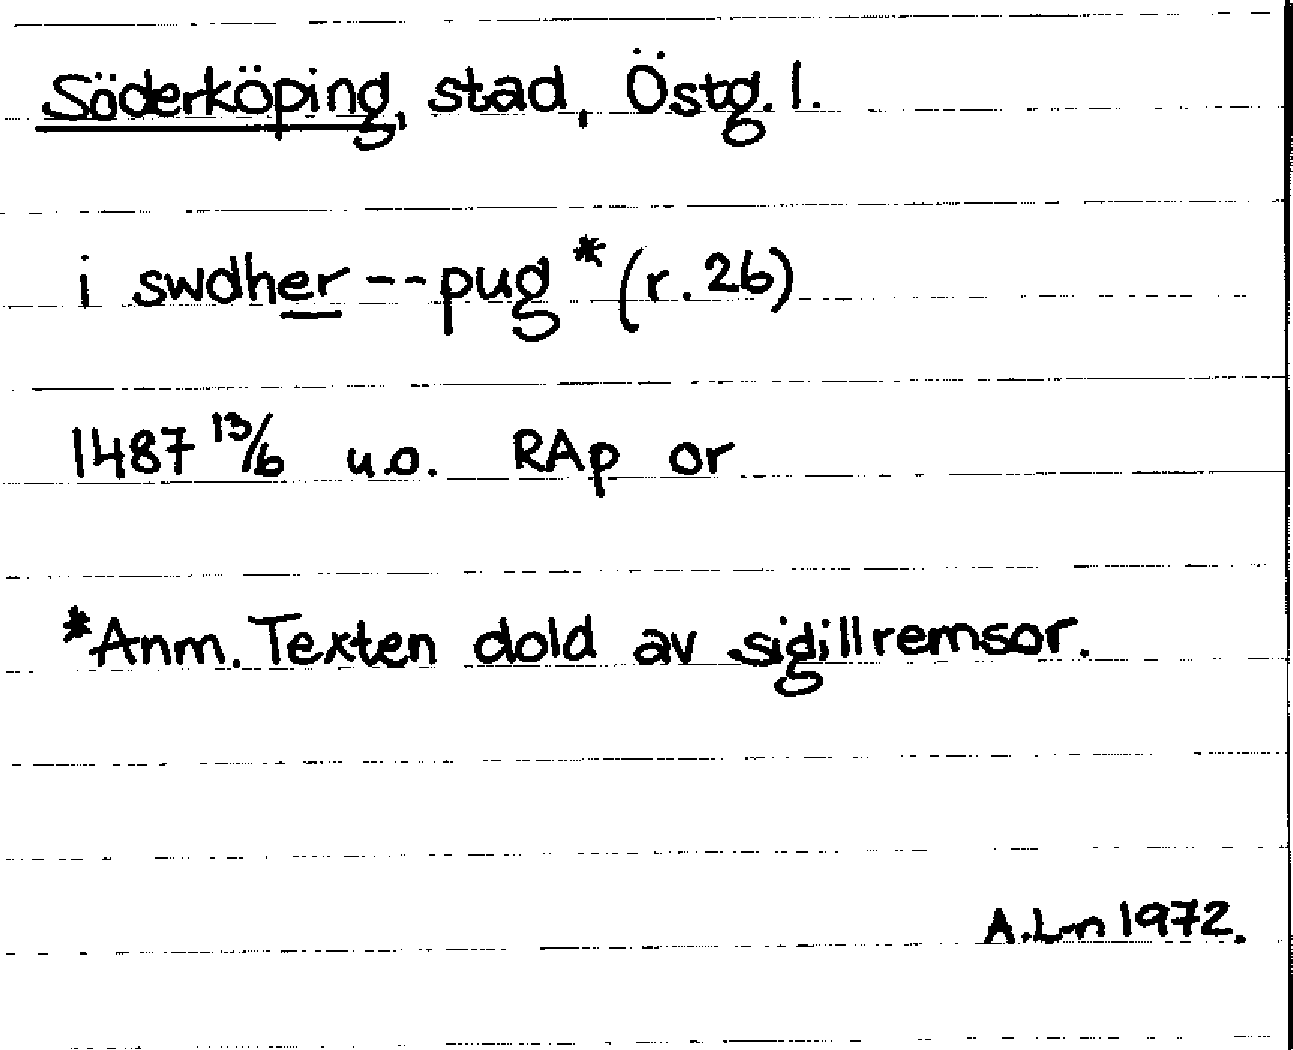 Söderköping, stad, Östg. l.
i swdher --pug * (r. 26)
1487 13/6 u.o. RAp or
*Anm. Texten dold av sigillremsor.
A.L-n 1972.